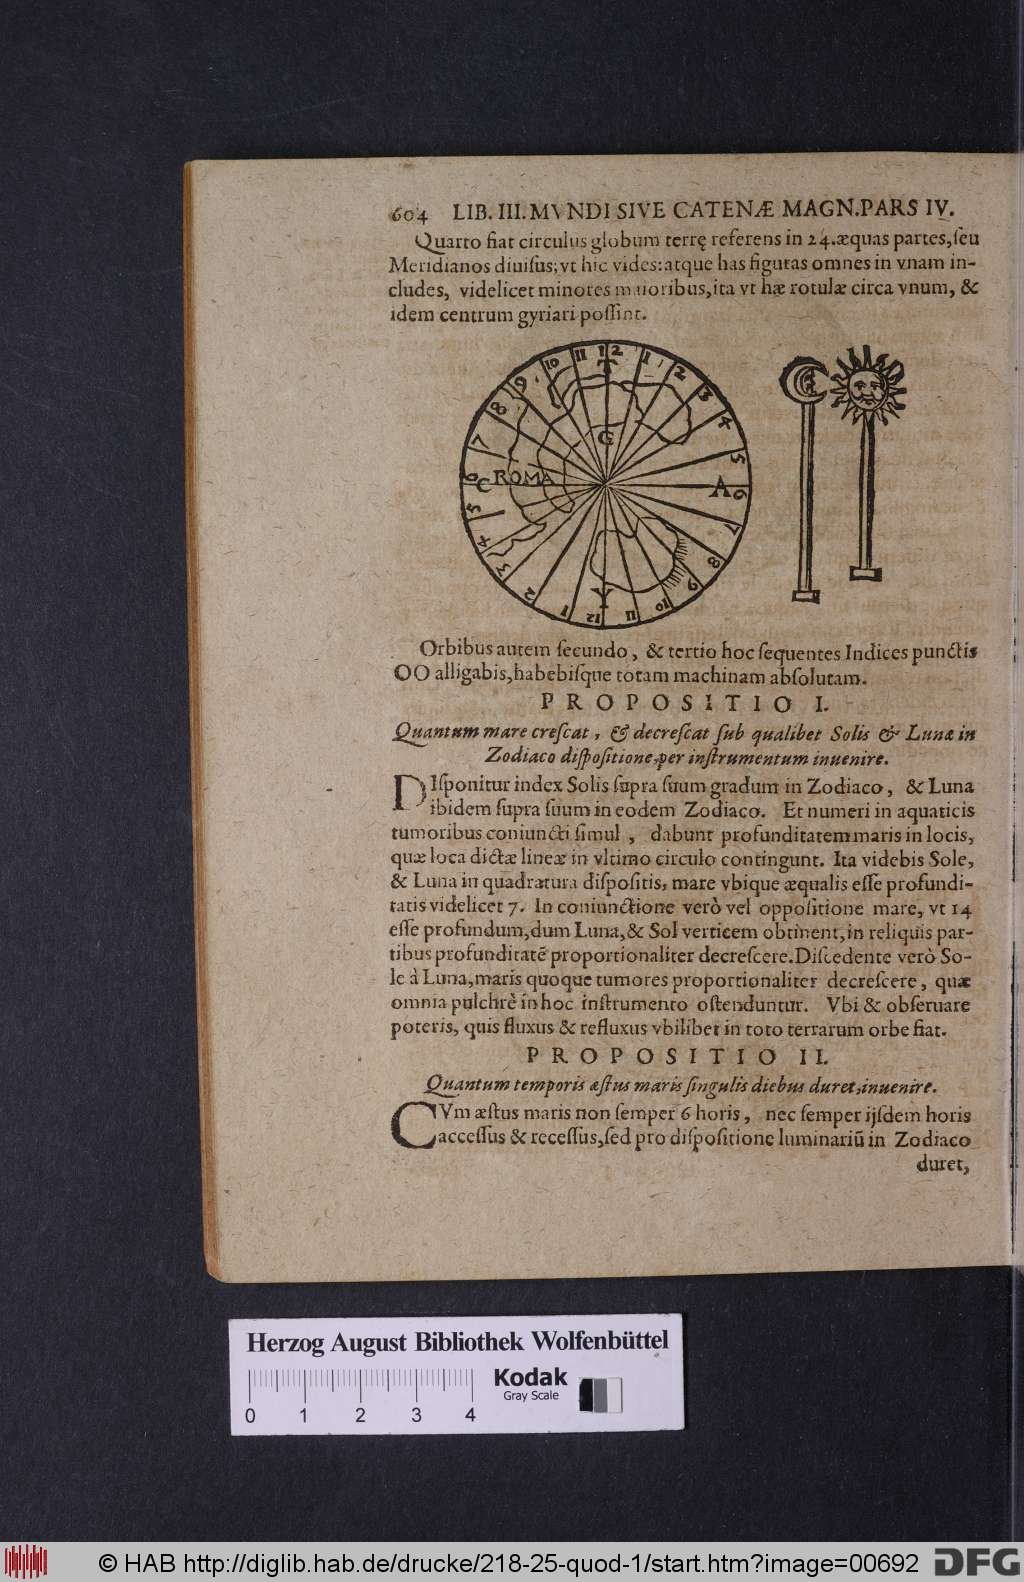 604 LIB. III. MVNDI SIVE CATENÆ MAGN. PARS IV.
Quarto fiat circulus globum terrę referens in 24. æquas partes, ſeu
Meridianos diuiſus; vt hic vides: atque has figuras omnes in vnam in-
cludes, videlicet minores maioribus, ita vt hæ rotulæ circa vnum, &
idem centrum gyriari poſſint.
12 1 2 3 4 5 6 7 8 9 10 11 12 1 2 3 4 5 6 7 8 9 10 11
T
G
C ROMA
A
Y
Orbibus autem ſecundo, & tertio hoc ſequentes Indices punctis
OO alligabis, habebiſque totam machinam abſolutam.
PROPOSITIO I.
Quantum mare creſcat, & decreſcat ſub qualibet Solis & Lunæ in
Zodiaco diſpoſitione, per inſtrumentum inuenire.
DIſponitur index Solis ſupra ſuum gradum in Zodiaco, & Luna
ibidem ſupra ſuum in eodem Zodiaco. Et numeri in aquaticis
tumoribus coniuncti ſimul, dabunt profunditatem maris in locis,
quæ loca dictæ lineæ in vltimo circulo contingunt. Ita videbis Sole,
& Luna in quadratura diſpoſitis, mare vbique æqualis eſſe profundi-
tatis videlicet 7. In coniunctione verò vel oppoſitione mare, vt 14
eſſe profundum, dum Luna, & Sol verticem obtinent, in reliquis par-
tibus profunditatẽ proportionaliter decreſcere. Diſcedente verò So-
le à Luna, maris quoque tumores proportionaliter decreſcere, quæ
omnia pulchrè in hoc inſtrumento oſtenduntur. Vbi & obſeruare
poteris, quis fluxus & refluxus vbilibet in toto terrarum orbe fiat.
PROPOSITIO II.
Quantum temporis æſtus maris ſingulis diebus duret, inuenire.
CVm æſtus maris non ſemper 6 horis, nec ſemper ijſdem horis
acceſſus & receſſus, ſed pro diſpoſitione luminariũ in Zodiaco
duret,
Herzog August Bibliothek Wolfenbüttel
0 1 2 3 4
Kodak
Gray Scale
© HAB http://diglib.hab.de/drucke/218-25-quod-1/start.htm?image=00692
DFG